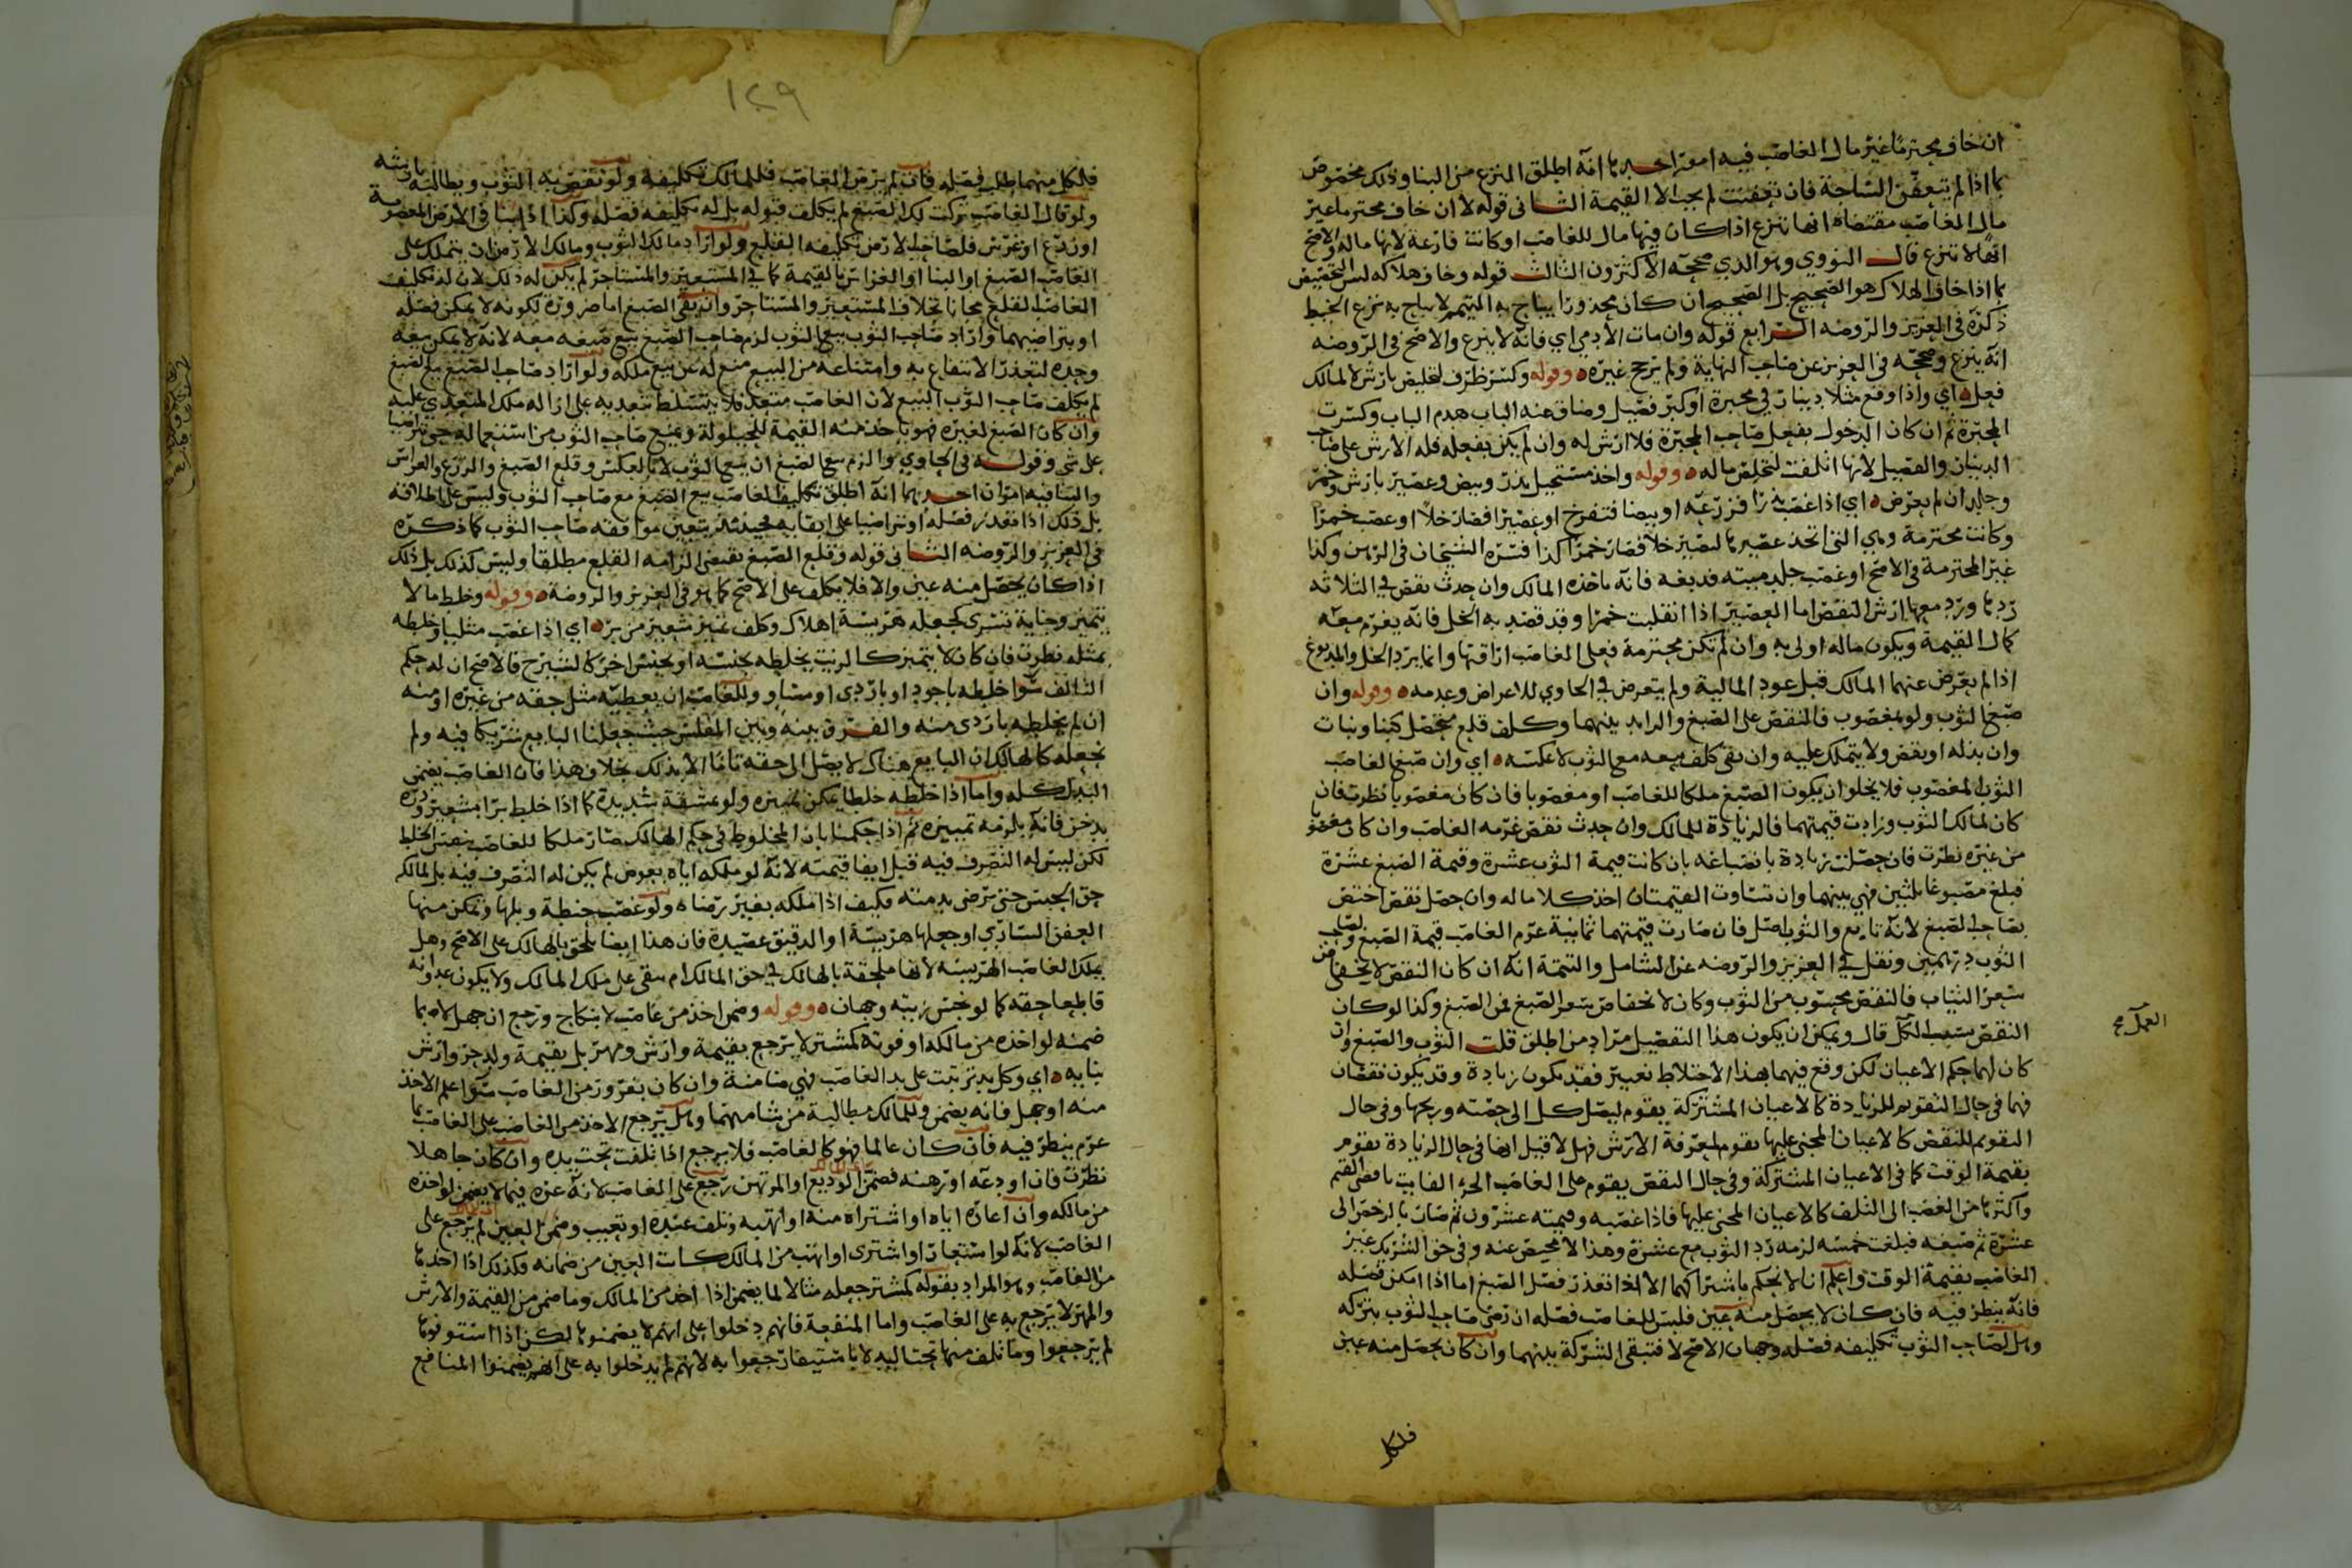 ان خاف محترما غير مال الغاصب فيه امور احدها انه اطلق المنزع من البنا وذلك مخصوص
بما اذا لم تتعفن الساجة فان تعفنت لم يجب الا القيمة الثاني قوله لا ان خاف محترما غير
مال الغاصب مقتضاه انها تنزع اذا كان فيها مال للغاصب او كانت فارغة لانها ماله والاصح
انها لا تنزع قال النووي وهو الذي صححه الاكثرون الثالث قوله وخاف هلاكه ليس التخصيص
بما اذا خاف الهلاك هو الصحيح بل الصحيح ان كان محذورا يباح به التيمم لا يباح به نزع الخيط
ذكره في العزيز والروضه الرابع قوله وان مات الادمي اي فانه لا ينزع والاصح في الروضه
انه ينزع وصححه في العزيز عن صاحب النهاية ولم يرجح غيره وقوله وكسر ظرف لتخليص بارش لا لمالك
فعل اي واذا وقع مثلا دينار في محبرة او كبر فصيل وضاق عنه الباب هدم الباب وكسرت
المحبرة ثم ان كان الدخول بفعل صاحب المحبرة فلا ارش له وان لم يكن بفعله فله الارش على صاحب
الدينار والفصيل لانها اتلفت لتخلص ماله وقوله واخذ مستحيل بذر وبيض وعصير بارش وخمر
وجلد ان لم يعرض اي اذا غصب بذرا فزرعه او بيضا فتفرخ او عصيرا فصار خلا او غصب خمرا
وكانت محترمة وهي التي اتخذ عصيرها لتصير خلا فصار خمرا كذا فسره الشيخان في الرهن وكذا
غير المحترمة في الاصح او غصب جلد ميته فدبغه فانه ياخذه المالك وان حدث نقص في الثلاثه
ردها ورد معها ارش النقص اما العصير اذا انقلبت خمرا وقد قصد به الخل فانه يغرم معه
كمال القيمة ويكون ماله اولى به وان لم تكن محترمة فعلى الغاصب اراقتها وانما يرد الخل والمدبوغ
اذا لم يعرض عنهما المالك قبل عود المالية ولم يتعرض في الحاوي للاعراض وعدمه وقوله وان
صبغ الثوب ولو بمغصوب فالنقص على الصبغ والزايد بينهما وكلف قلع محصل كبنا ونبات
وان بذله او نقص ولا يتملك عليه وان بقي كلف بيعه مع الثوب لا عكسه اي وان صبغ الغاصب
الثوب المغصوب فلا يخلو ان يكون الصبغ ملكا للغاصب او مغصوبا فان كان مغصوبا نظرت فان
كان لمالك الثوب وزادت قيمتهما فالزيادة للمالك وان حدث نقص غرمه الغاصب وان كان مغصوبا
من غيره نظرت فان حصلت زيادة بانصباغه بان كانت قيمة الثوب عشرة وقيمة الصبغ عشرة
فبلغ مصبوغا ثلثين فهي بينهما وان تساوت القيمتان اخذ كلا ماله وان حصل نقص اختص
بصاحب الصبغ لانه تابع والثوب اصل فان صارت قيمتهما ثمانية غرم الغاصب قيمة الصبغ ولصاحب
الثوب درهمين ونقل في العزيز والروضه عن الشامل والتتمة انه ان كان النقص لانخفاض
سعر الثياب فالنقص محسوب من الثوب وكان لانخفاض سعر الصبغ فمن الصبغ وكذا لو كان
النقص بسبب الكل قال ويمكن ان يكون هذا التفصيل مراد من اطلق قلت الثوب والصبغ وان
العمل صح
كان لهما حكم الاعيان لكن وقع فيهما بهذا الاختلاط تعيير فقد تكون زيادة وقد يكون نقصان
فهما في حال التقويم للزيادة كالاعيان المشتركة يقوم ليصل كل الى حصته وربحها وفي حال
التقويم للنقص كالاعيان المجني عليها يقوم لمعرفة الارش فهل لا قيل انها في حال الزيادة تقوم
بقيمة الوقت كما في الاعيان المشتركة وفي حال النقص يقوم على الغاصب الجزء الفايت باقصى القيم
واكثرها من الغصب الى التلف كالاعيان المجني عليها فاذا غصبه وقيمته عشرون ثم صارت بالرخص الى
عشرة ثم صبغه فبلغت خمسه لزمه رد الثوب مع عشرة وهذا لا محيص عنه وفي حق الشريك غير
الغاصب بقيمة الوقت واعلم انا لا نحكم باشتراكهما الا اذا تعذر فصل الصبغ اما اذا امكن فصله
فانه ينظر فيه فان كان لا يحصل منه عين فليس للغاصب فصله ان رضي صاحب الثوب بتركه
وهل لصاحب الثوب تكليفه فصله وجهان الاصح لا فتبقى الشركة بينهما وان كان يحصل منه عين
فلكل
١٢٩
فلكل منهما طلب فصله فان لم يرض الغاصب فللمالك تكليفه ولو نقص به الثوب ويطالبه بارشه
ولو قال الغاصب تركت لك الصبغ لم يكلف قبوله بل له تكليفه فصله وكذا اذا بنا في الارض المغصوبة
او زرع او غرس فلصاحب الارض تكليفه القلع ولو اراد مالك الثوب ومالك الارض ان يتملك على
الغاصب الصبغ او البنا او الغراس بالقيمة كما في المستعير والمستاجر لم يكن له ذلك لان له تكليف
الغاصب القلع مجانا بخلاف المستعير والمستاجر وان بقي الصبغ اما ضرورة لكونه لا يمكن فصله
او بتراضيهما واراد صاحب الثوب بيع الثوب لزم صاحب الصبغ بيع صبغه معه لانه لا يمكن بيعه
وحده لتعذر الانتفاع به وامتناعه من البيع منع له عن بيع ملكه ولو اراد صاحب الصبغ بيع الصبغ
لم يكلف صاحب الثوب البيع لان الغاصب متعد فلا يتسلط بتعديه على ازاله ملك المتعدي عليه
وان كان الصبغ لغيره فهو ياخذ منه القيمة للحيلولة ويمنع صاحب الثوب من استعماله حتى تراضيا
على شي وقوله في الحاوي والزم بيع الصبغ ان بيع الثوب لا بالعكس وقلع الصبغ والزرع والغراس
والبنا فيه امران احدهما انه اطلق تكليف الغاصب بيع الصبغ مع صاحب الثوب وليس على اطلاقه
بل ذلك اذا تعذر فصله او تراضيا على ابقايه فحينئذ يتعين موافقه صاحب الثوب كما ذكره
في العزيز والروضه الثاني قوله وقلع الصبغ يقتضي الزامه القلع مطلقا وليس كذلك بل ذلك
اذا كان يحصل منه عين والا فلا يكلف على الاصح كما هو في العزيز والروضة وقوله وخلط ما لا
يتميز وجناية تسري كجعله هريسة اهلاك وكلف تمييز شعير من بر اي اذا غصب مثليا وخلطه
بمثله نظرت فان كان لا يتميز كالزيت يخلطه بجنسه او بجنس اخر كالشيرج فالاصح ان له حكم
التالف سوا خلطه باجود او باردى او مساو وللغاصب ان يعطيه مثل حقه من غيره او منه
ان لم يخلطه باردى منه والفرق بينه وبين المفلس حيث جعلنا البايع شريكا فيه ولم
نجعله كالهالك ان البايع هناك لا يصل الى حقه تاما الا بذلك بخلاف هذا فان الغاصب يضمن
البدل كله واما اذا خلطه خلطا يمكن تمييزه ولو بمشقة شديدة كما اذا خلط برا بشعير وذره
بدخن فانه يلزمه تمييزه ثم اذا حكمنا بان المخلوط في حكم الهالك صار ملكا للغاصب بنفس الخلط
لكن ليس له التصرف فيه قبل ايفا قيمته لانه لو ملكه اياه بعوض لم يكن له التصرف فيه بل لمالكه
حق الحبس حتى يرضى بذمته فكيف اذا ملكه بغير رضاه ولو غصب حنطة وبلها وتمكن منها
العفن الساري او جعلها هريسة او الدقيق عصيدة فان هذا ايضا يلحق بالهالك على الاصح وهل
يملك الغاصب الهريسه لانها ملحقة بالهالك في حق المالك ام تبقى على ملك المالك ولا يكون عدوانه
قاطعا حقه كما لو نجس زيته وجهان وقوله وضمن اخذ من غاصب لا بنكاح ورجع ان جهل لا بما
ضمنه لو اخذه من مالكه او فوته كمشتر لا يرجع بقيمة وارش ومهر بل بقيمة ولد حر وارش
بنايه اي وكل يد ترتبت على يد الغاصب فهي ضامنة وان كان بغرور من الغاصب سوا علم الاخذ
منه او جهل فانه يضمن وللمالك مطالبة من شا منهما وهل يرجع الاخذ من الغاصب على الغاصب بما
غرم ينظر فيه فان كان عالما فهو كالغاصب فلا يرجع اذا تلفت تحت يده وان كان جاهلا
نظرت فان اودعه او رهنه فضمن الوديع او المرتهن رجع على الغاصب لانه غره فيما لا يضمن لو اخذه
من مالكه وان اعاره اياه او اشتراه منه او اتهبه وتلف عنده او تعيب وضمن العين لم يرجع على
الغاصب لانه لو استعار او اشترى او اتهب من المالك كانت العين من ضمانه فكذلك اذا اخذها
من الغاصب وهو المراد بقوله كمشتر جعله مثالا لما يضمن اذا اخذ من المالك وما ضمن من القيمة والارش
والمهر لا يرجع به على الغاصب واما المنفعة فانهم دخلوا على انهم لا يضمنونها لكن اذا استوفوها
لم يرجعوا وما تلف منها تحت اليد لا باستيفا رجعوا به لانهم لم يدخلوا به على انهم يضمنوا المنافع